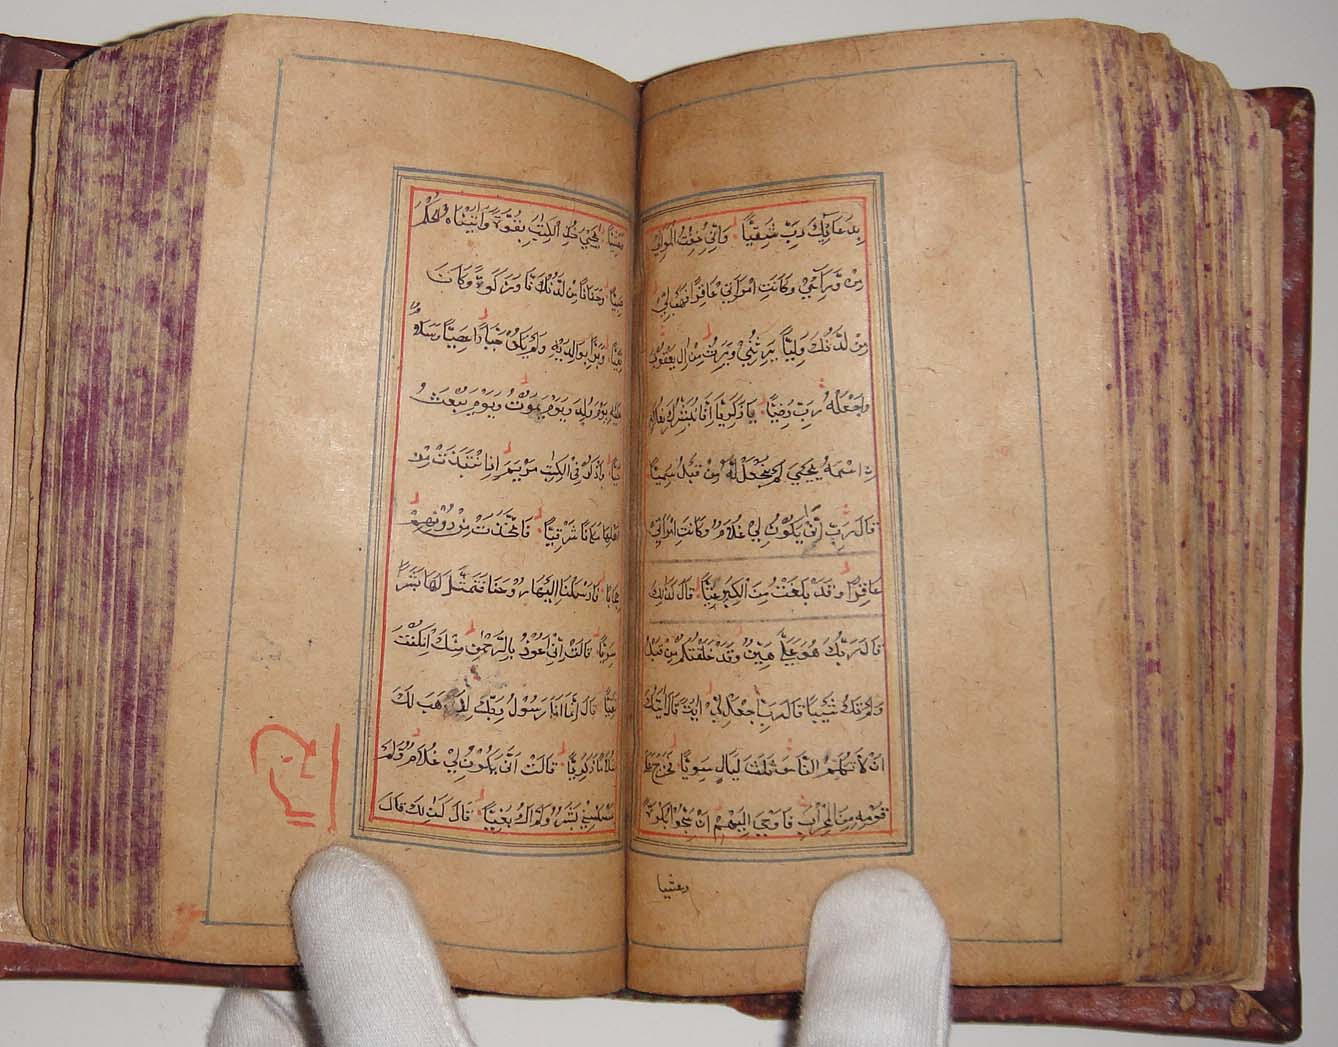 بِدُعَائِكَ رَبِّ شَقِيًّا وَاِنِّي خِفْتُ الْمَوَالِيَ
مِنْ وَّرَآءِيْ وَكَانَتِ امْرَاَتِيْ عَاقِرًا فَهَبْ لِيْ
مِنْ لَّدُنْكَ وَلِيًّا يَرِثُنِيْ وَيَرِثُ مِنْ اٰلِ يَعْقُوْبَ
وَاجْعَلْهُ رَبِّ رَضِيًّا يَا زَكَرِيَّا اِنَّا نُبَشِّرُكَ بِغُلَامِ
نِ اسْمُهُ يَحْيٰى لَمْ نَجْعَلْ لَّهُ مِنْ قَبْلُ سَمِيًّا
قَالَ رَبِّ اَنّٰى يَكُوْنُ لِيْ غُلَامٌ وَّكَانَتِ امْرَاَتِيْ
عَاقِرًا وَّقَدْ بَلَغْتُ مِنَ الْكِبَرِ عِتِيًّا قَالَ كَذٰلِكَ
قَالَ رَبُّكَ هُوَ عَلَيَّ هَيِّنٌ وَّقَدْ خَلَقْتُكَ مِنْ قَبْلُ
وَلَمْ تَكُ شَيْئًا قَالَ رَبِّ اجْعَلْ لِّيْ اٰيَةً قَالَ اٰيَتُكَ
اَنْ لَا تُكَلِّمَ النَّاسَ ثَلٰثَ لَيَالٍ سَوِيًّا فَخَرَجَ عَلٰى
قَوْمِهِ مِنَ الْمِحْرَابِ فَاَوْحٰى اِلَيْهِمْ اَنْ سَبِّحُوْا بُكْرَةً
وعشيا
وَعَشِيًّا يٰيَحْيٰى خُذِ الْكِتٰبَ بِقُوَّةٍ وَاٰتَيْنَاهُ الْحُكْمَ
صَبِيًّا وَحَنَانًا مِّنْ لَّدُنَّا وَزَكٰوةً وَكَانَ
تَقِيًّا وَبَرًّا بِوَالِدَيْهِ وَلَمْ يَكُنْ جَبَّارًا عَصِيًّا وَسَلَامٌ
عَلَيْهِ يَوْمَ وُلِدَ وَيَوْمَ يَمُوْتُ وَيَوْمَ يُبْعَثُ
حَيًّا وَاذْكُرْ فِي الْكِتٰبِ مَرْيَمَ اِذِ انْتَبَذَتْ مِنْ
اَهْلِهَا مَكَانًا شَرْقِيًّا فَاتَّخَذَتْ مِنْ دُوْنِهِمْ
حِجَابًا فَاَرْسَلْنَا اِلَيْهَا رُوْحَنَا فَتَمَثَّلَ لَهَا بَشَرًا
سَوِيًّا قَالَتْ اِنِّيْ اَعُوْذُ بِالرَّحْمٰنِ مِنْكَ اِنْ كُنْتَ
تَقِيًّا قَالَ اِنَّمَا اَنَا رَسُوْلُ رَبِّكِ لِاَهَبَ لَكِ
غُلَامًا زَكِيًّا قَالَتْ اَنّٰى يَكُوْنُ لِيْ غُلَامٌ وَّلَمْ
يَمْسَسْنِيْ بَشَرٌ وَّلَمْ اَكُ بَغِيًّا قَالَ كَذٰلِكِ قَالَ